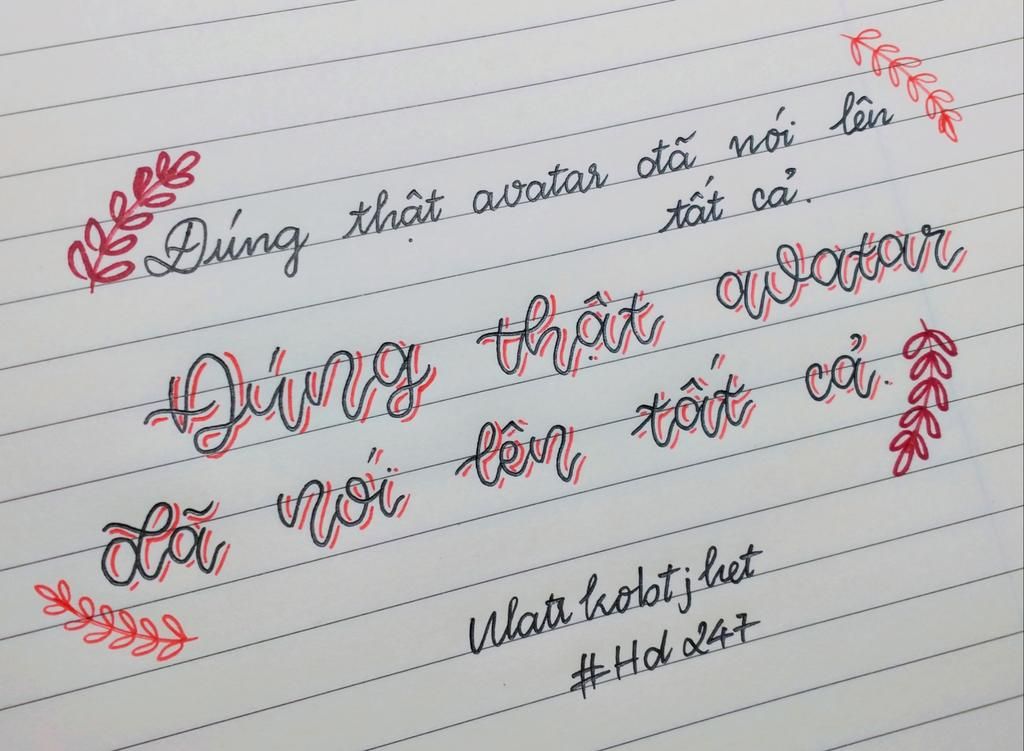 Đúng thật avatar đã nói lên
tất cả.
Đúng thật avatar
đã nói lên tất cả.
#Hd 247